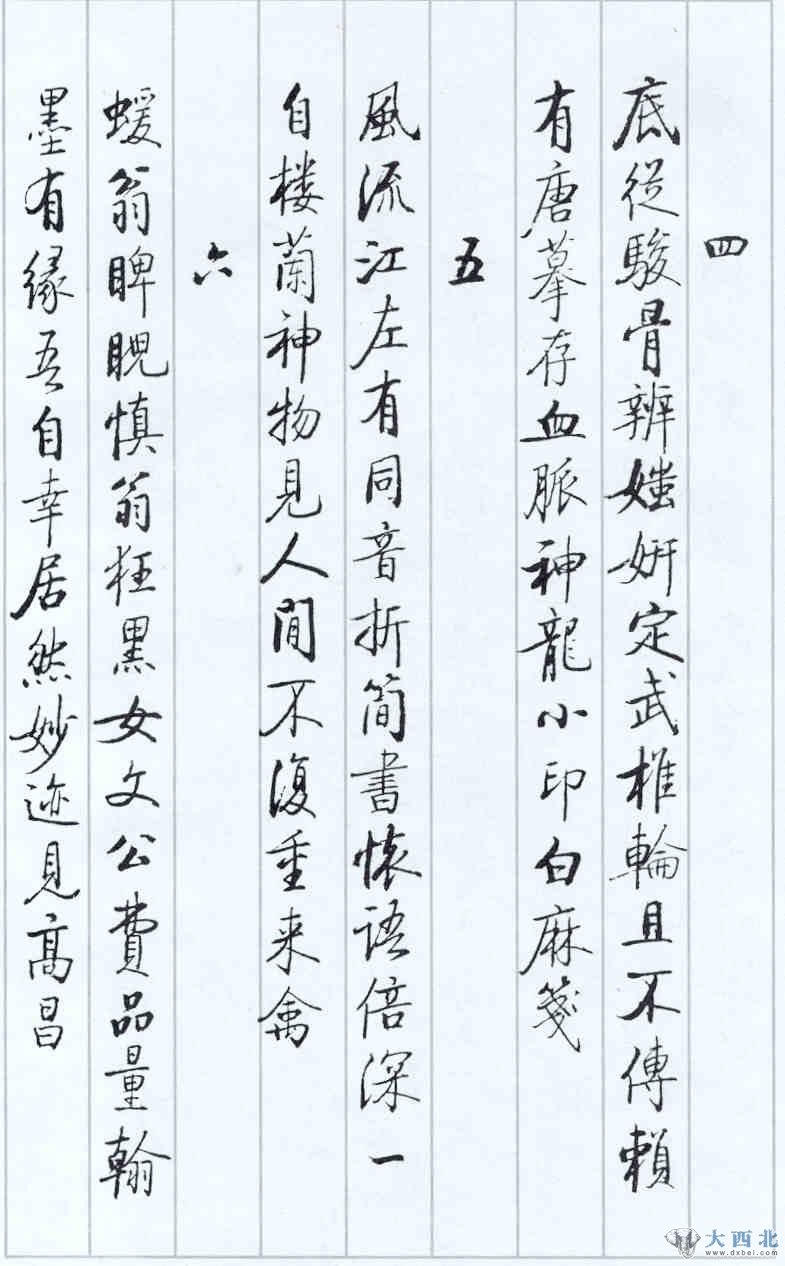 四
底從駿骨辨媸妍定武椎輪且不傳賴
有唐摹存血脈神龍小印白麻箋
五
風流江左有同音折簡書懷語倍深一
自楼蘭神物見人間不復重来禽
六
蝯翁睥睨慎翁狂黑女文公費品量翰
墨有緣吾自幸居然妙迹見高昌
大西北
www.dxbei.com